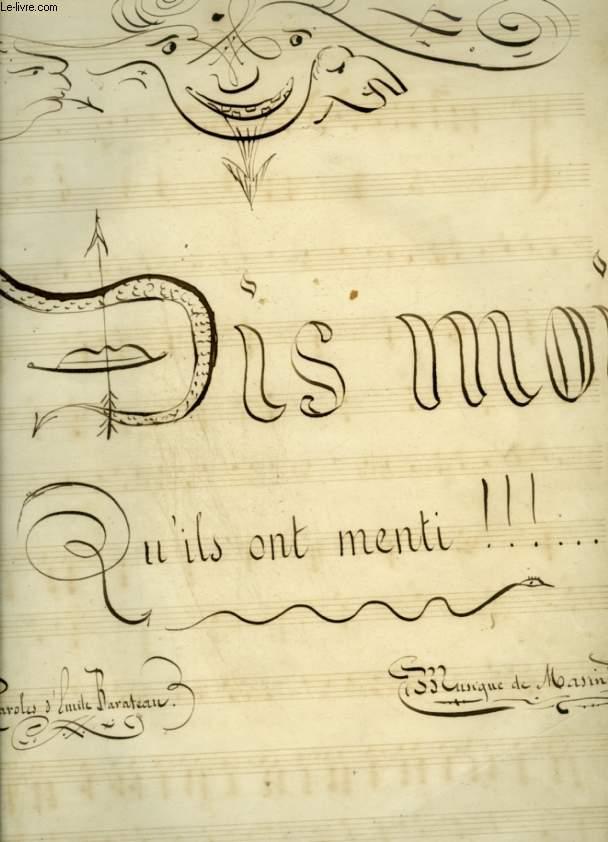 Le-livre.com
Dis moi
Qu'ils ont menti !!!...
Paroles d'Emile Barateau.
Musique de Masin